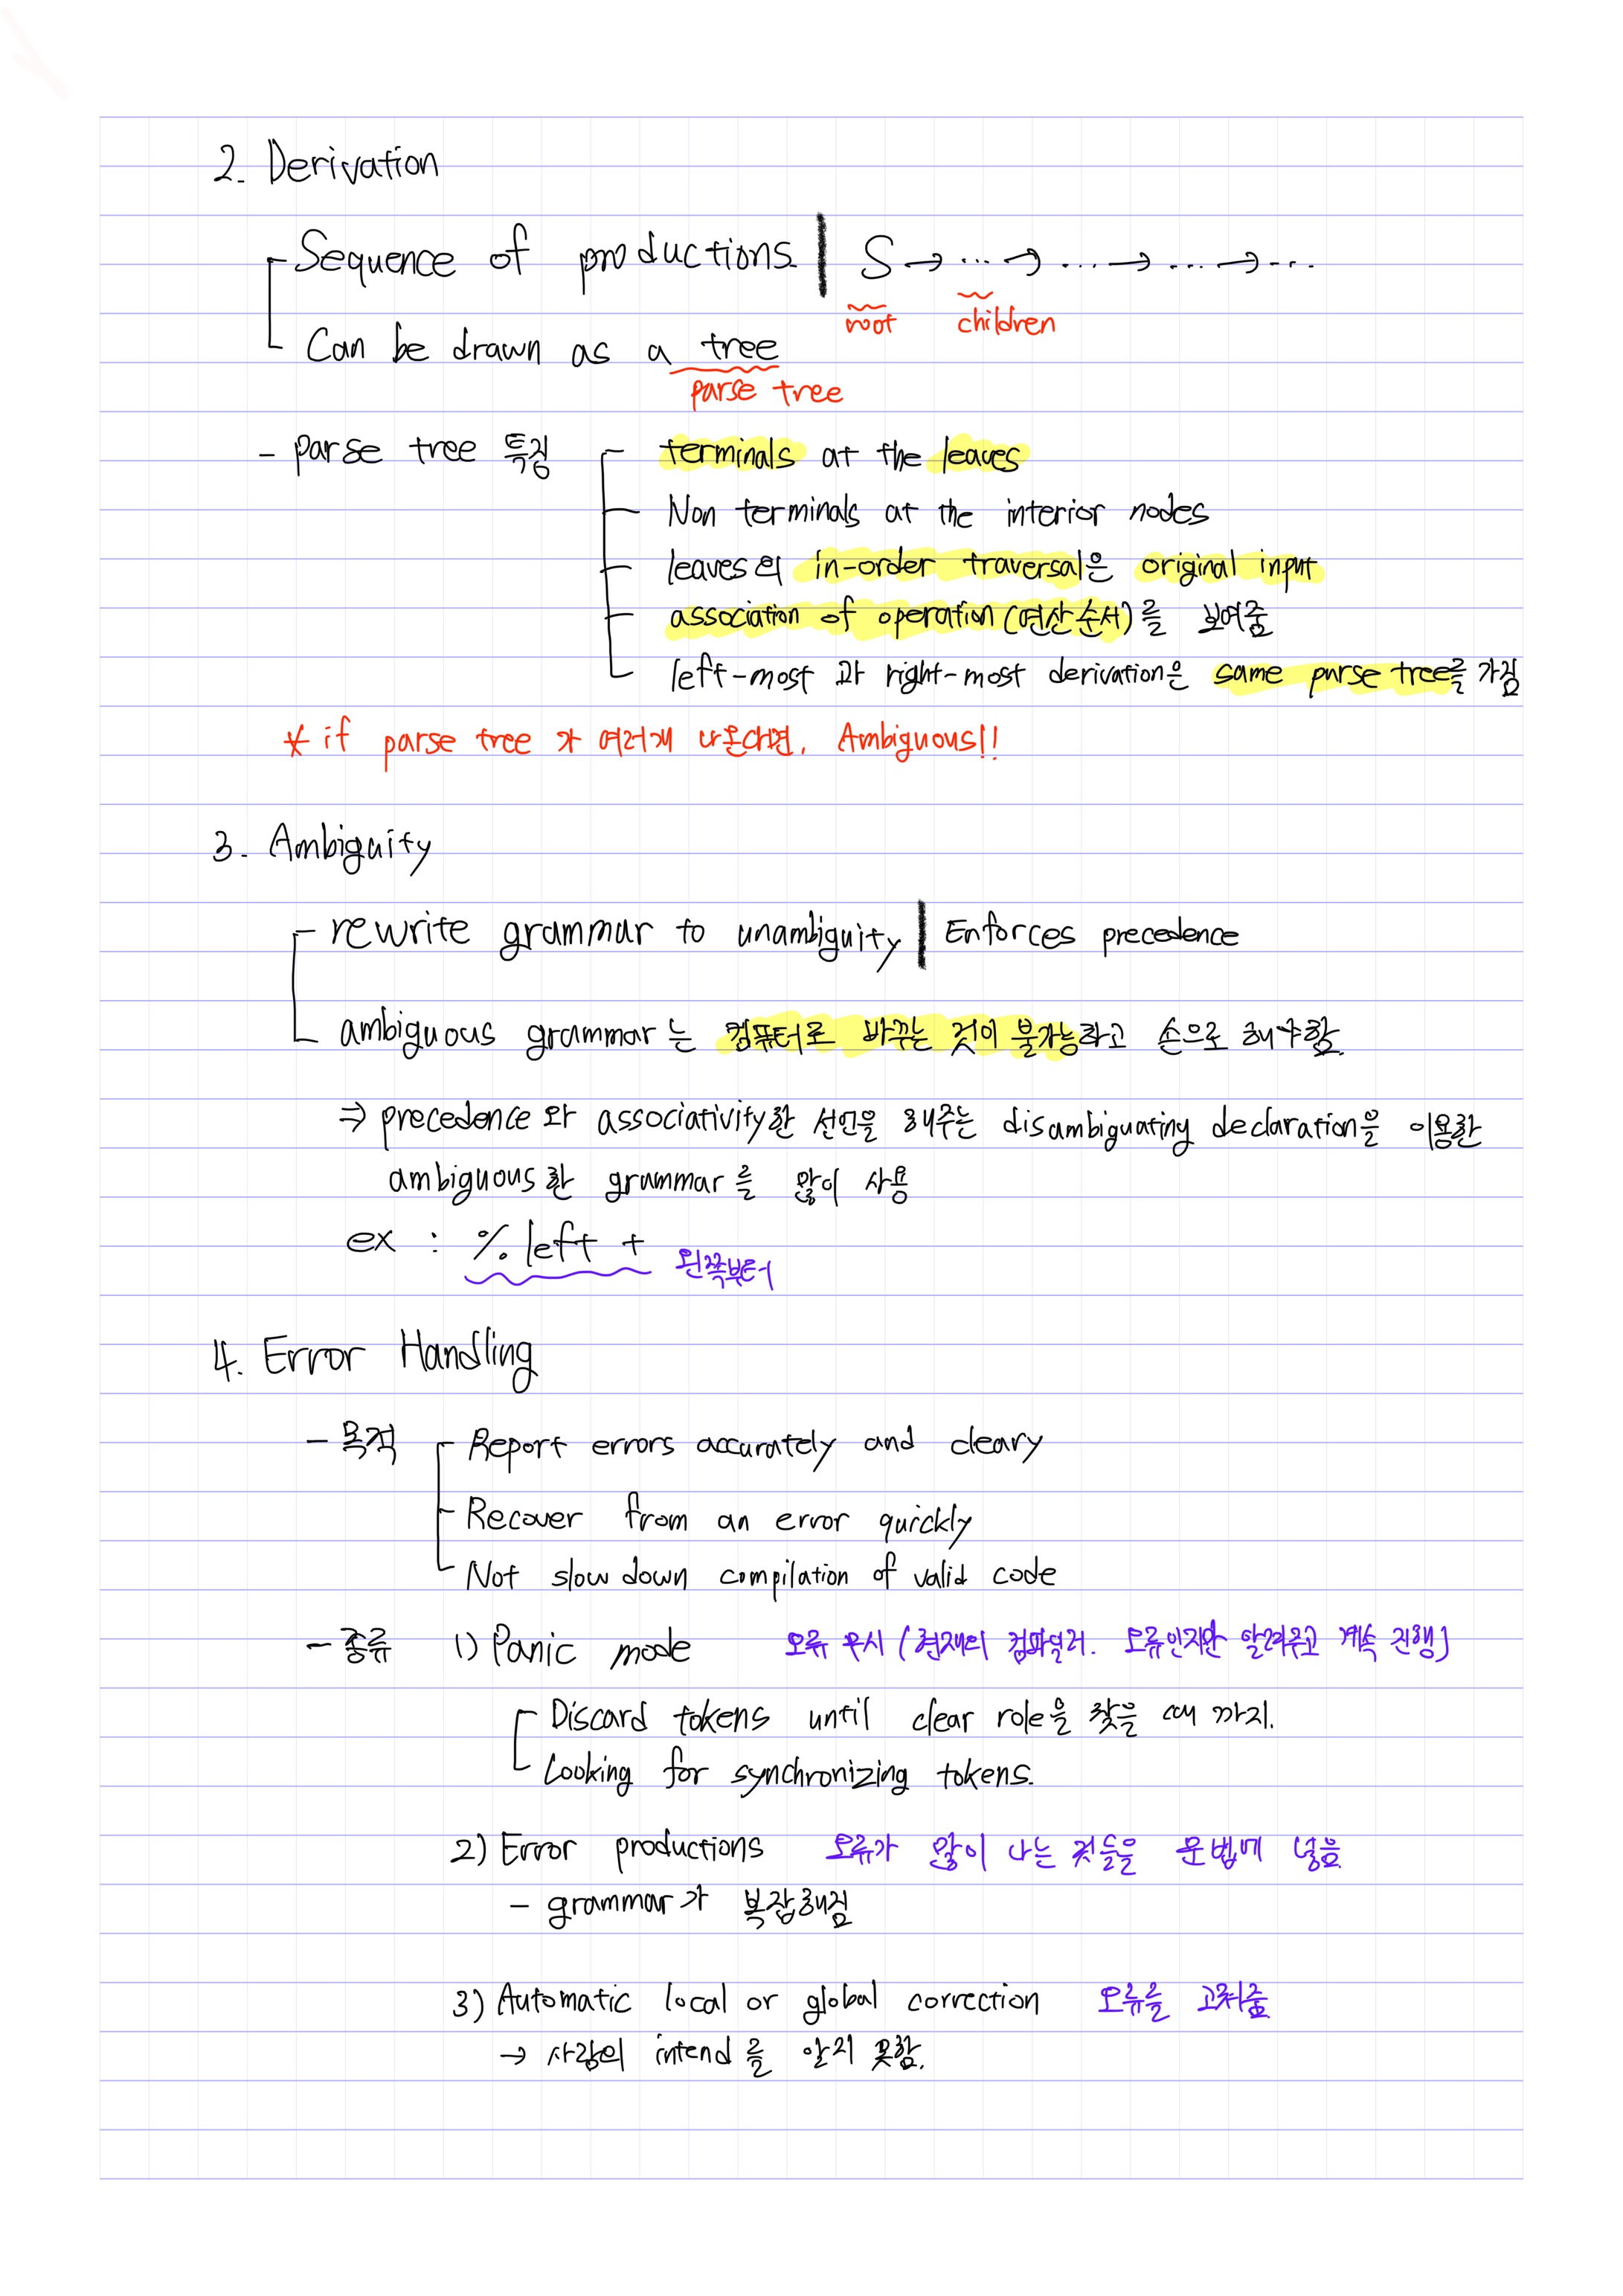 2. Derivation
Sequence of productions. | S → ... → .... → .... → ....
root children
Can be drawn as a tree
parse tree
- parse tree 특징 terminals at the leaves
Non terminals at the interior nodes
leaves의 in-order traversal은 original input
association of operation (연산 순서)를 보여줌
left-most 과 right-most derivation은 same parse tree를 가짐
* if parse tree 가 여러개 나온다면, Ambiguous!!
3. Ambiguity
rewrite grammar to unambiguity | Enforces precedence
ambiguous grammar는 컴퓨터로 바꾸는 것이 불가능하고 손으로 해야함.
⇒ precedence 와 associativity한 선언을 해주는 disambiguating declaration을 이용한
ambiguous한 grammar를 많이 사용
ex : % left + 왼쪽부터
4. Error Handling
- 목적 Report errors accurately and cleary
Recover from an error quickly
Not slow down compilation of valid code
- 종류 1) Panic mode 오류 무시 (현재의 컴파일러. 오류인지만 알려주고 계속 진행)
Discard tokens until clear role을 찾을 때 까지.
Looking for synchronizing tokens.
2) Error productions 오류가 많이 나는 것들을 문법에 넣음
- grammar가 복잡해짐
3) Automatic local or global correction 오류를 고쳐줌
→ 사람의 intend를 알지 못함.